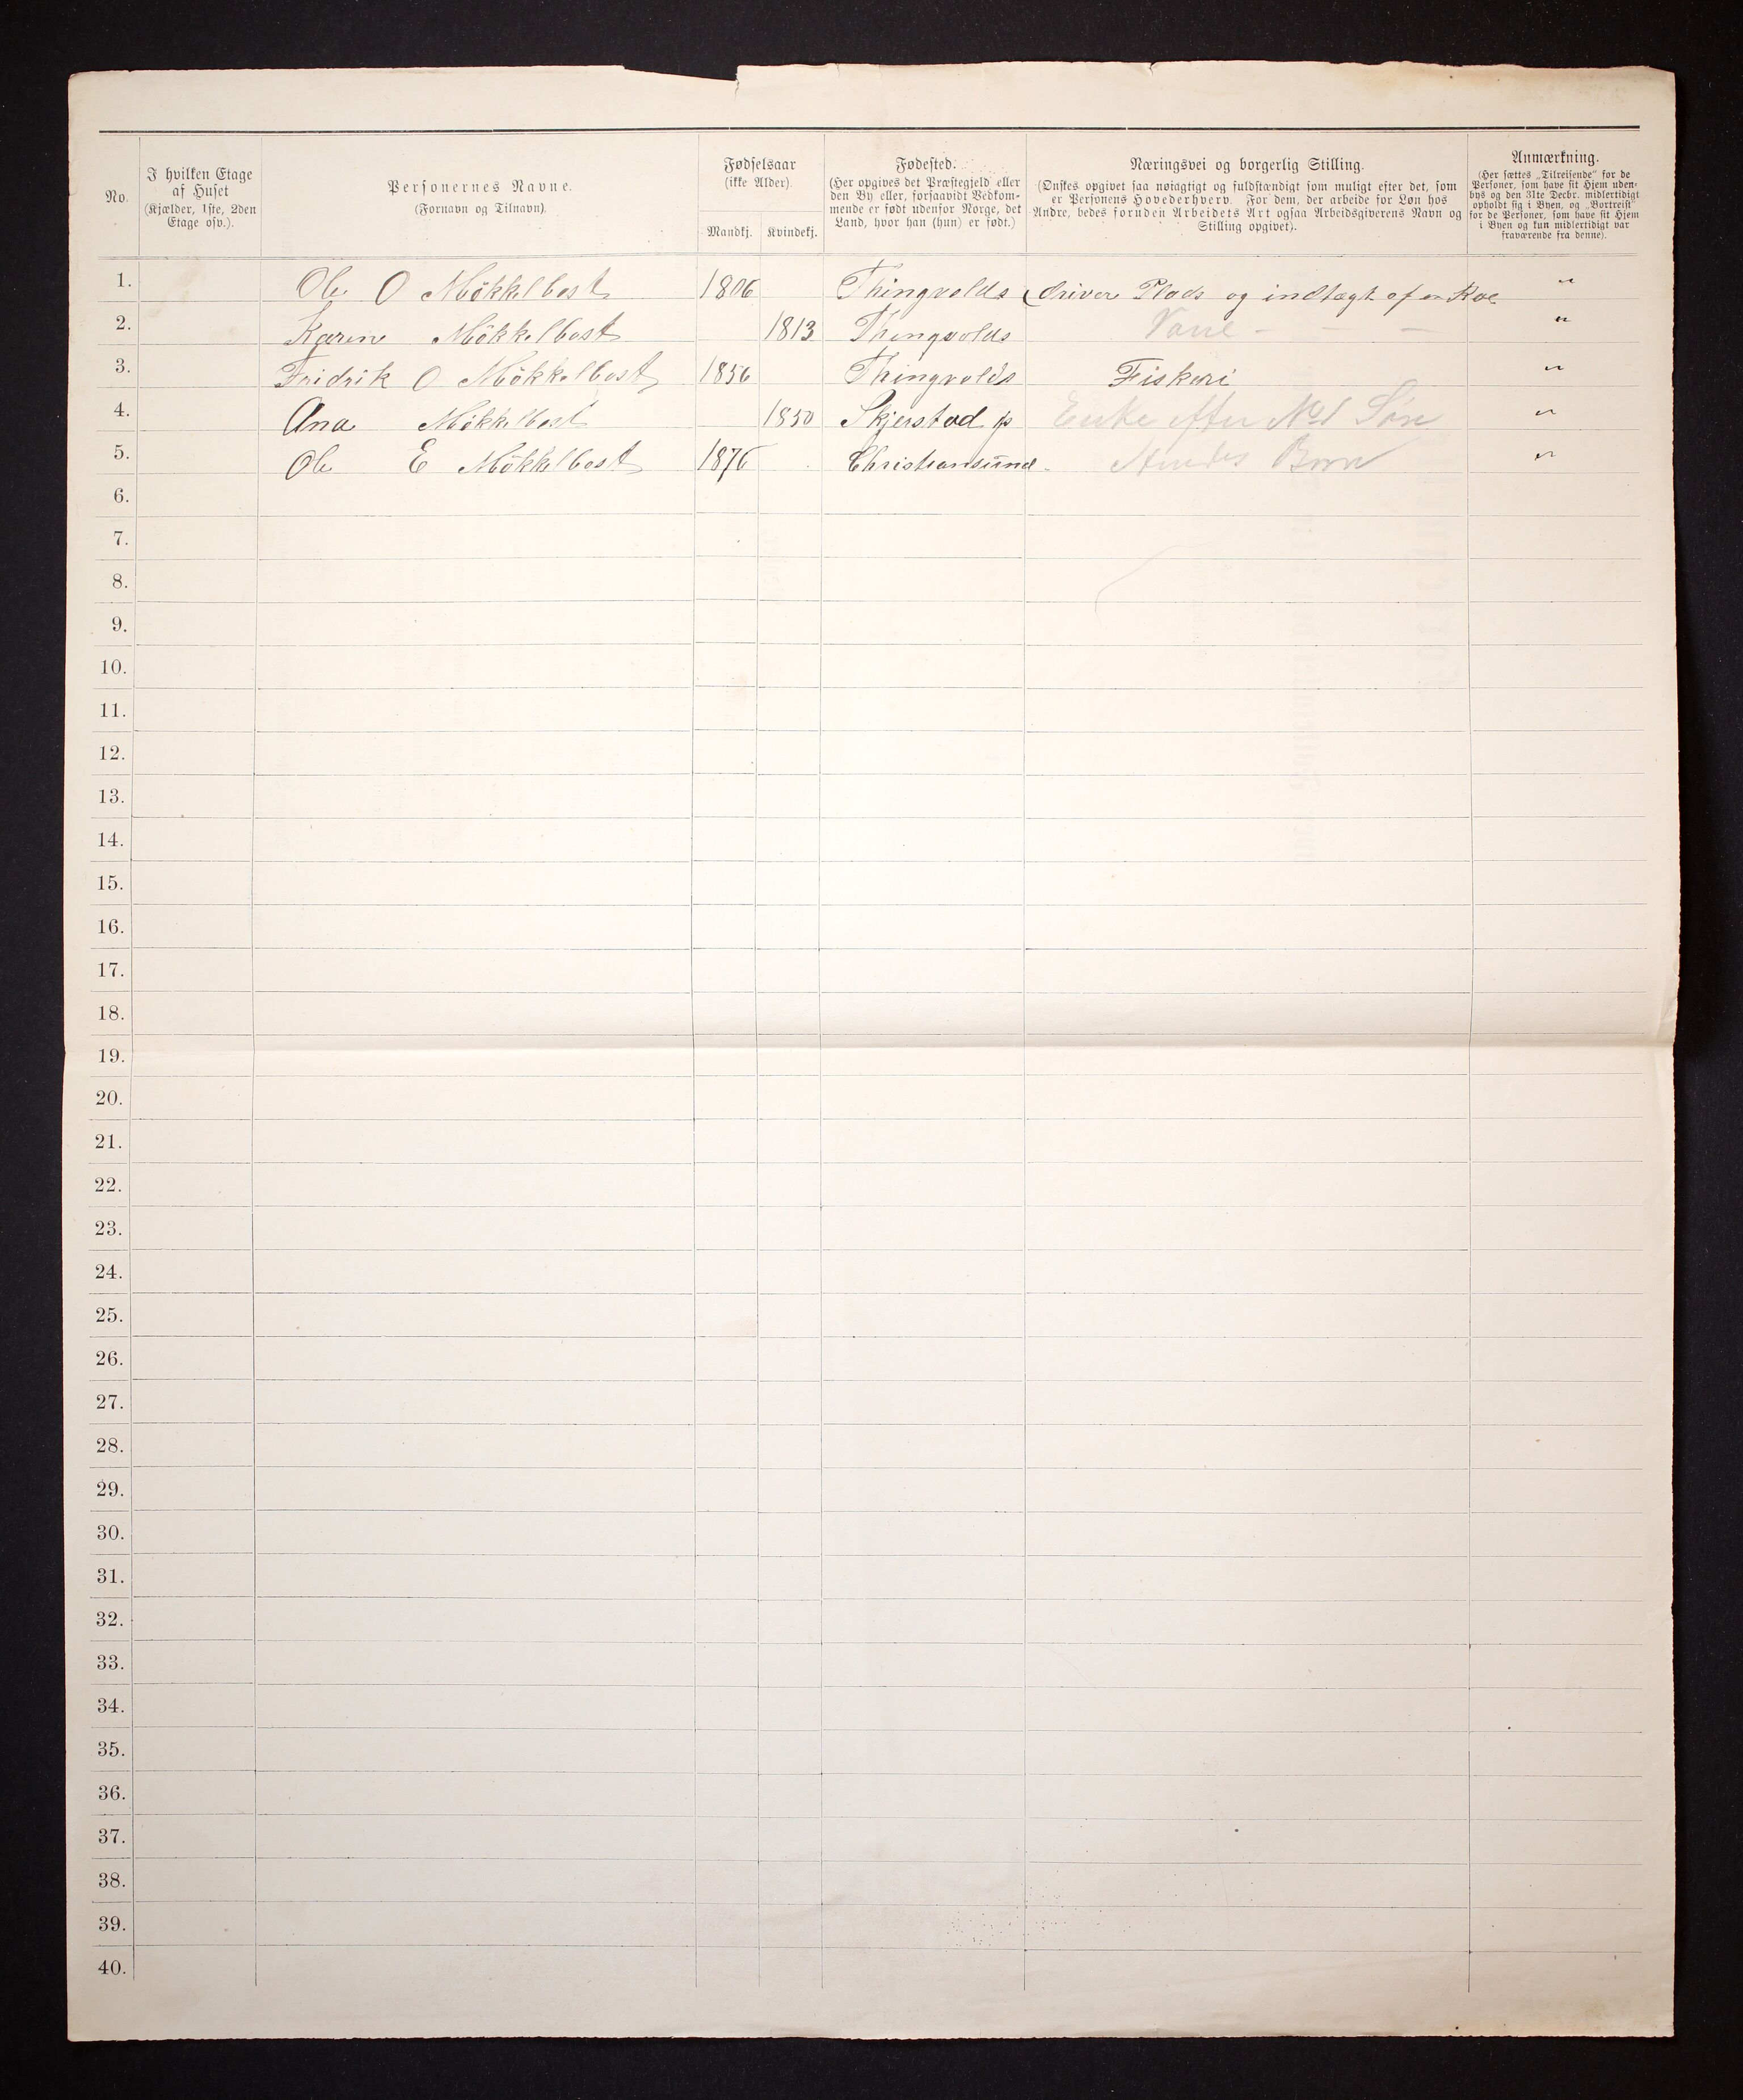 No.
I hvilken Etage
af Huset
(Kjælder, 1ste, 2den
Etage osv.).
Personernes Navne.
(Fornavn og Tilnavn).
Fødselsaar
(ikke Alder)
Mandkj.
Kvindekj.
Fødested.
(Her opgives det Præstegjeld eller
den By eller, forsaavidt Vedkom-
mende er født udenfor Norge, det
Land, hvor han (hun) er født.)
Næringsvei og borgerlig Stilling.
(Ønskes opgivet saa nøiagtigt og fuldstændigt som muligt efter det, som
er Personens Hovederhverv. For dem, der arbeide for Løn hos
Andre, bedes foruden Arbeidets Art ogsaa Arbeidsgiverens Navn og
Stilling opgivet).
Anmærkning.
(Her sættes „Tilreisende" for de
Personer, som have sit Hjem uden-
bys og den 31te Decbr. midlertidigt
opholdt sig i Byen, og „Bortreist"
for de Personer, som have sit Hjem
i Byen og kun midlertidigt var
fraværende fra denne).
1. Ole O Mökkelbost 1806 Thingvolds driver Plads og indtægt af en Koe "
2. Karen Mökkelbost 1813 Thingvolds "
3. Fridrik O Mökkelbost 1856 Thingvolds Fiskeri "
4. Ana Mökkelbost 1850 Skjerstad p Enke efter No 1 Søn "
5. Ole E Mökkelbost 1876 Christiansund Barn "
6.
7.
8.
9.
10.
11.
12.
13.
14.
15.
16.
17.
18.
19.
20.
21.
22.
23.
24.
25.
26.
27.
28.
29.
30.
31.
32.
33.
34.
35.
36.
37.
38.
39.
40.